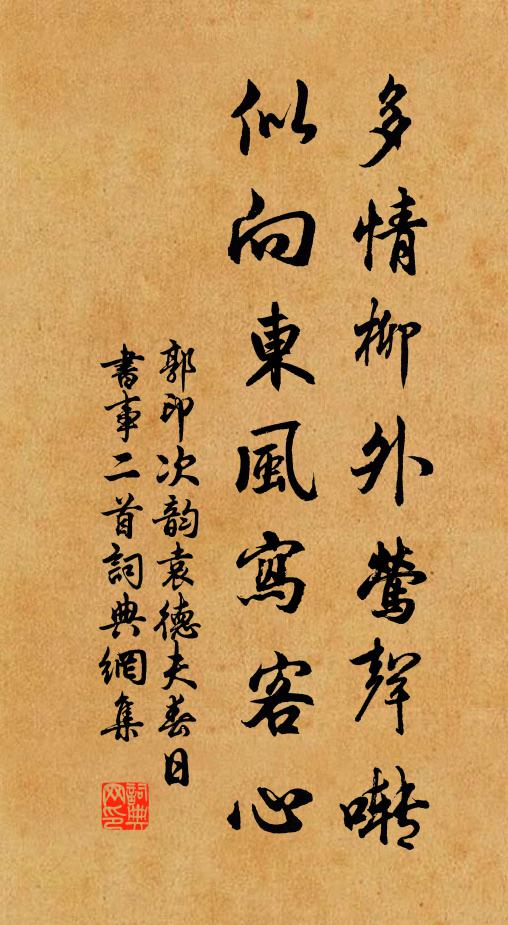 多情柳外鶯聲囀
似向東風寫客心
郭印次韵袁德夫春日
書事二首詞典網集
詞典网印